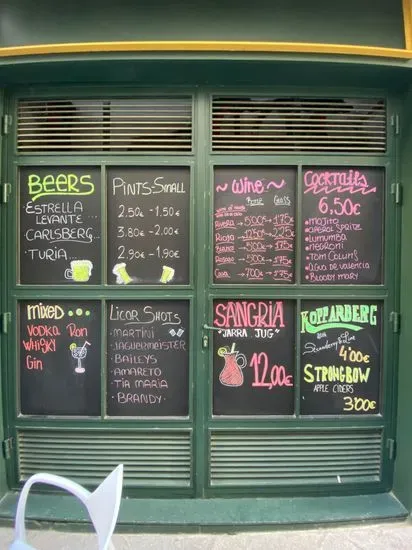 BEERS
ESTRELLA
LEVANTE...
CARLSBERG...
TURIA...
PINTS-SMALL
2.50€ - 1.50€
3.80€ - 2.00€
2.90€ - 1.90€
~ Wine ~
Bottle Glass
Rivera → 5'00€ → 1'75€
Rioja → 12'50€ → 2'25€
Blanco → 5'00€ → 1'75€
Rosado → 5'00€ → 1'75€
Cava → 7'00€ → 1'75€
COCKTAILS
6,50€
MOJITO
APEROL SPRITZ
LUMUMBA
NEGRONI
TOM COLLINS
AGUA DE VALENCIA
BLOODY MARY
MIXED...
VODKA RON
WHISKY
GIN
LICOR SHOTS
- MARTINI
- JAGUERMEISTER
- BAILEYS
- AMARETO
- TIA MARIA
- BRANDY
SANGRIA
"JARRA JUG"
12,00€
KOPPARBERG
Strawberry & Lime
4'00€
STRONGBOW
APPLE CIDERS
3'00€